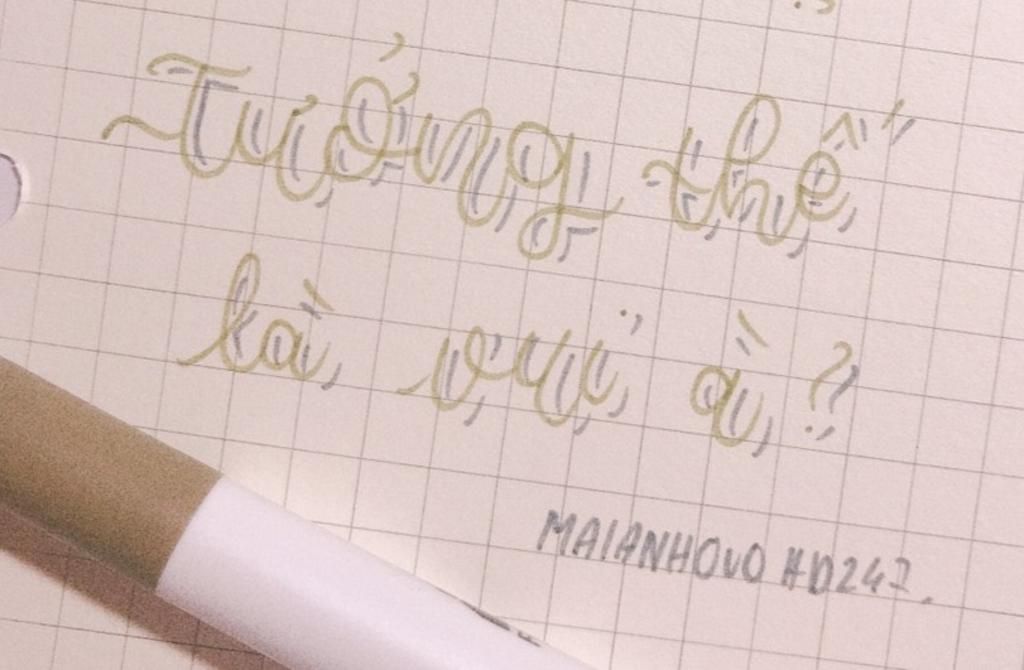 Tưởng thế
là vui à?
MAIANHOVO HD247.